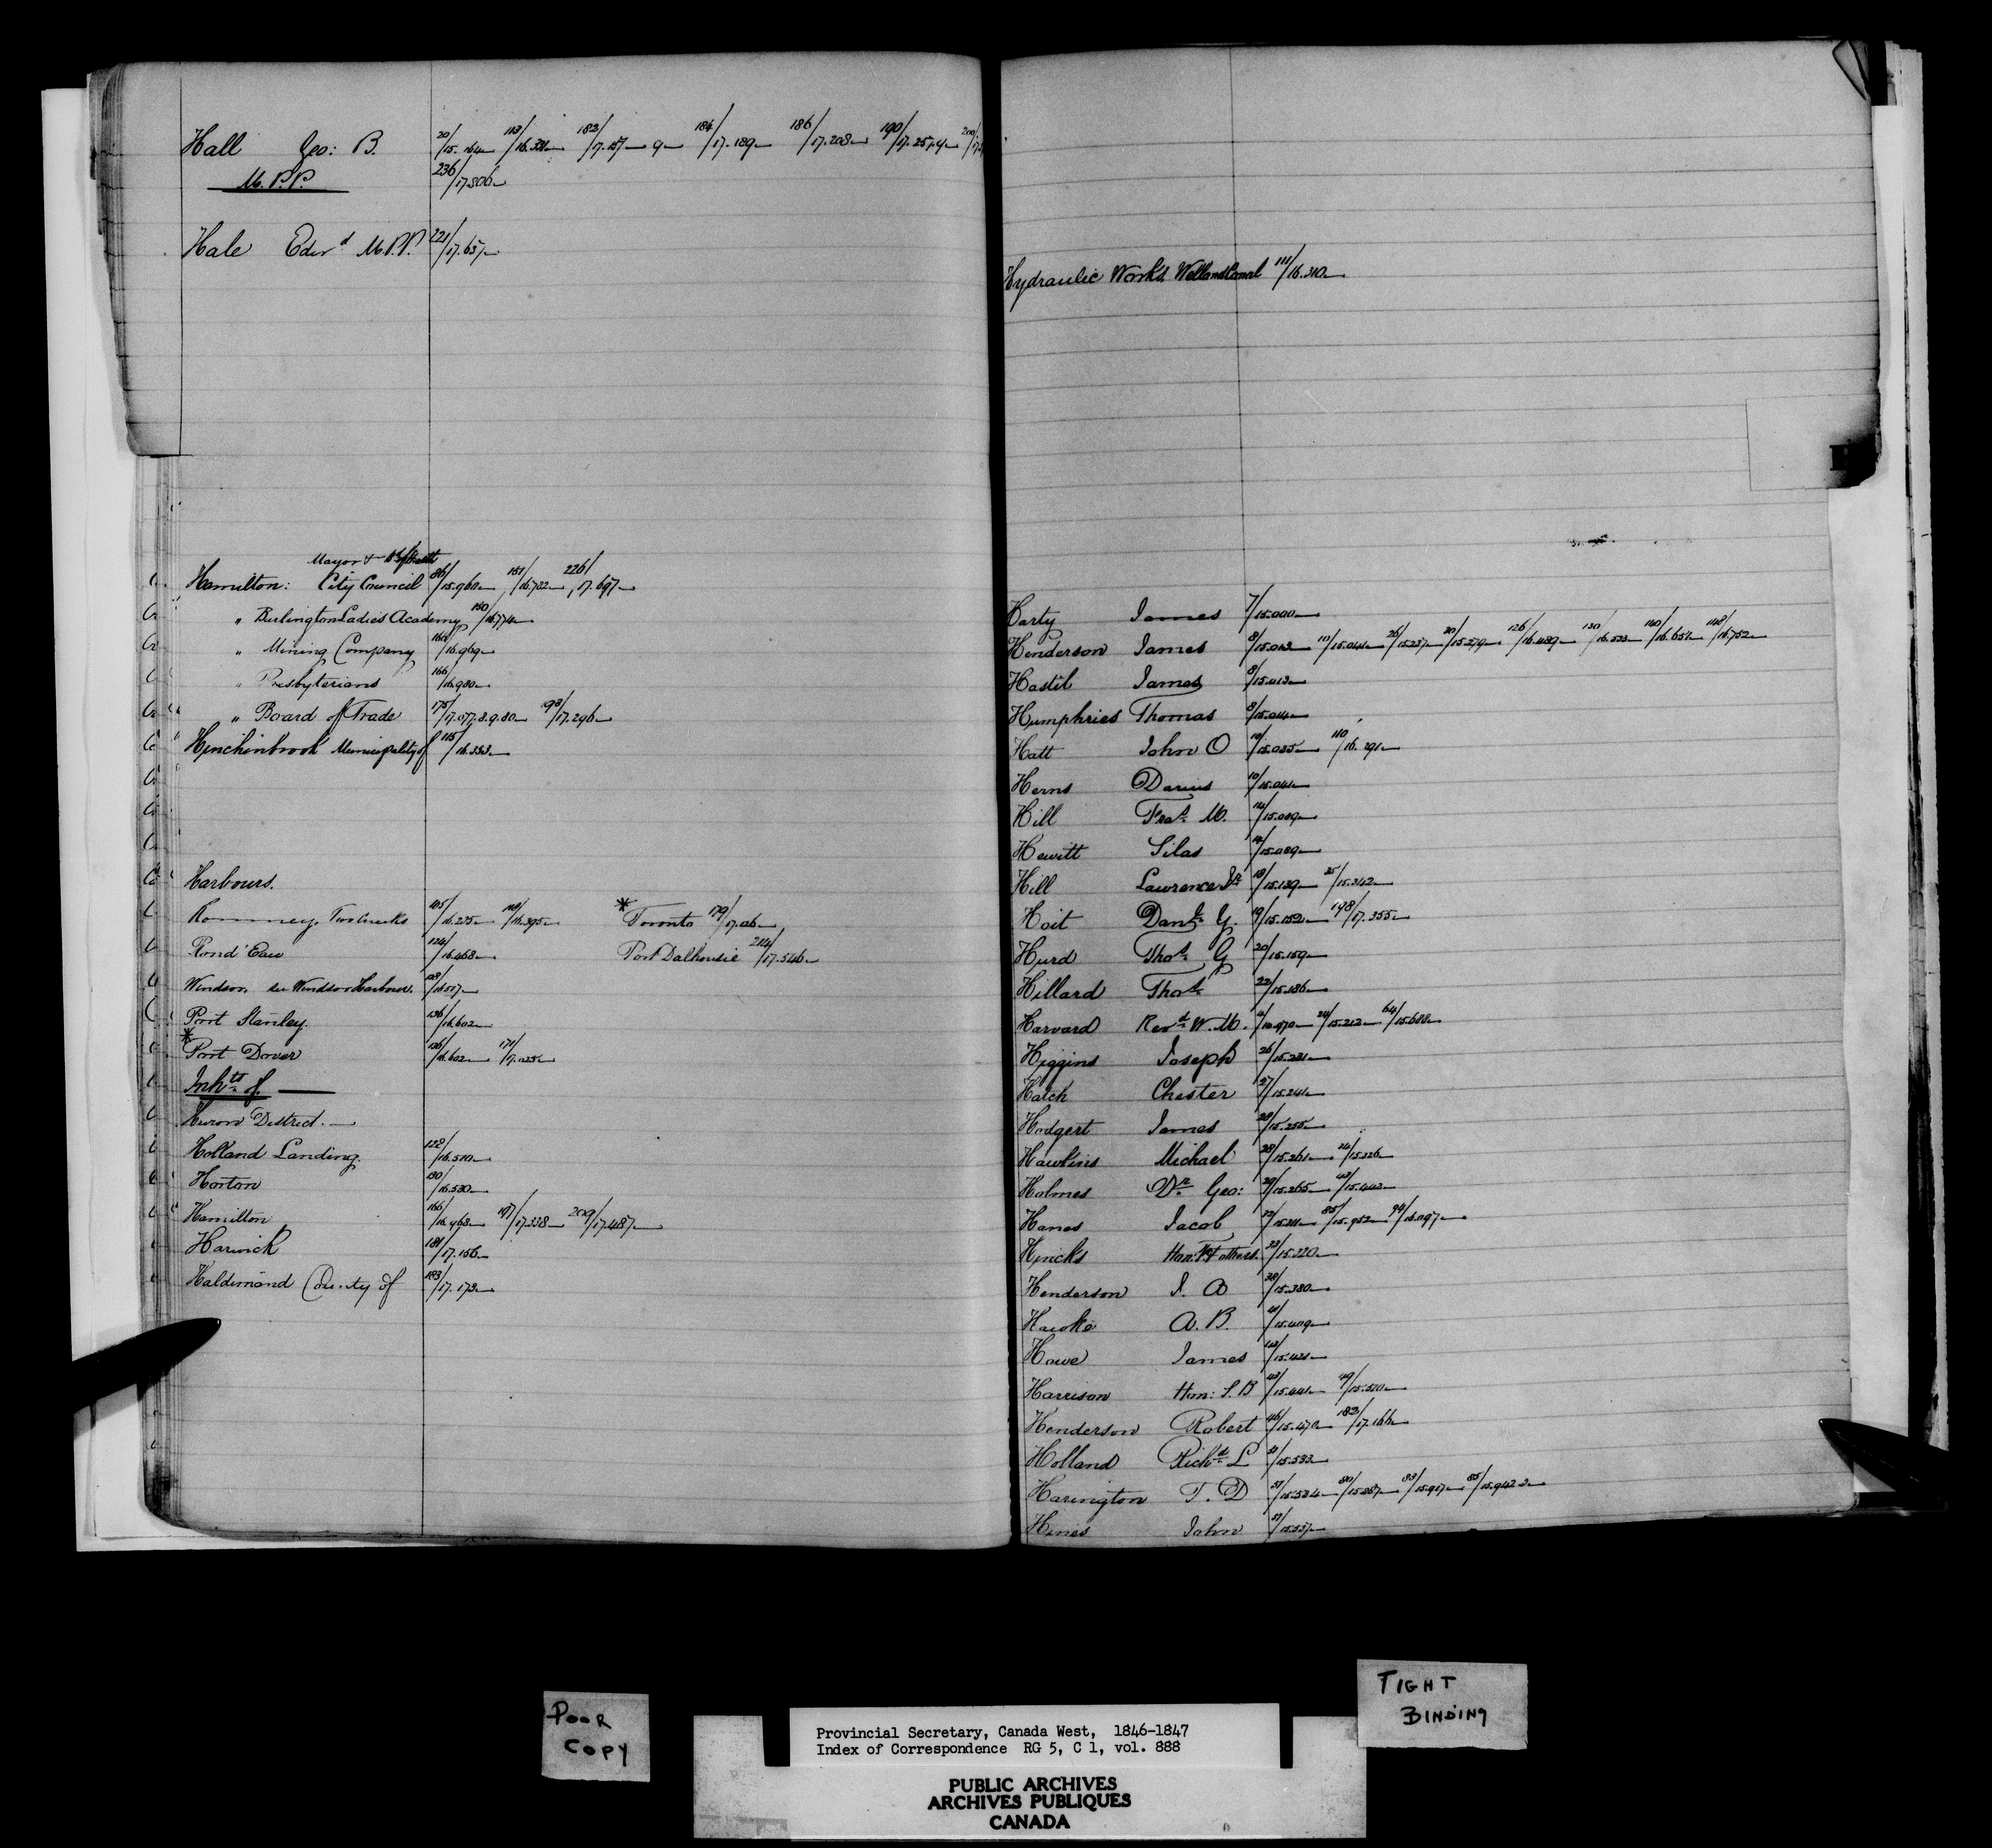 Hall Geo: B. 20/15.164 113/16.331 182/17.157 9 184/17.189 186/17.208 190/17.257.4
M.P.P. 236/17.806
Hale Edwd M.P.P. 221/17.657
Mayor &
Hamilton: City Council 86/15.960 151/16.782 226/17.697
" Burlington Ladies Academy 150/16.774
" Mining Company /16.969
" Presbyterians 166/16.980
" Board of Trade 175/17.077.8.9.80 /17.296
Hinchinbrook Municipality of 115/16.353
Harbours.
Romney. Two Creeks 105/16.275 /16.395 * Toronto 179/17.126
Rond Eau 124/16.468 Port Dalhousie 214/17.546
Windsor. see Windsor Harbour. 128/16.517
Port Stanley. 136/16.602
* Port Dover 136/16.602 171/17.025
Inhts of
Huron District.
Holland Landing. /16.510
Horton 130/16.530
Hamilton 166/16.968 197/17.338 209/17.487
Harwich 181/17.156
Haldimand County of 183/17.173
Hydraulic Works Welland Canal 111/16.310
Harty James 7/15.000
Henderson James 8/15.013 10/15.044 26/15.237 /15.279 126/16.489 130/16.533 140/16.657 148/16.752
Hastil James 8/15.013
Humphries Thomas 8/15.014
Hatt John O 10/15.035 110/16.291
Herns Darius 10/15.041
Hill Fras M. 14/15.089
Hewitt Silas 14/15.089
Hill Lawrence 18/15.139 35/15.342
Hoit Danl G. 19/15.152 198/17.355
Hurd Thos G 20/15.159
Hillard Thos 22/15.186
Harvard Revd W. M. /14.970 24/15.212 64/15.688
Higgins Joseph 26/15.231
Hatch Chester 27/15.241
Hodgert James 28/15.255
Hawkins Michael 28/15.261 34/15.326
Holmes Dr Geo: 29/15.265 43/15.442
Hanes Jacob 32/15.311 85/15.952 94/16.097
Hincks Hon: F & others 33/15.320
Henderson J. A 38/15.380
Hawke A. B. 41/15.409
Howe James 42/15.421
Harrison Hon: S. B 43/15.441 49/15.510
Henderson Robert 46/15.470 183/17.166
Holland Richd L 51/15.533
Harington T. D 51/15.534 80/15.887 83/15.917 85/15.942
Hines John 51/15.537
POOR
COPY
TIGHT
BINDING
Provincial Secretary, Canada West, 1846-1847
Index of Correspondence RG 5, C 1, vol. 888
PUBLIC ARCHIVES
ARCHIVES PUBLIQUES
CANADA